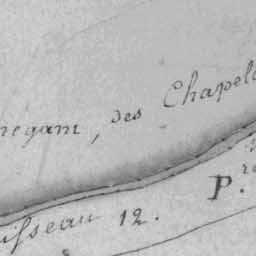 negam, des Chapel
P. re
isseau 12.